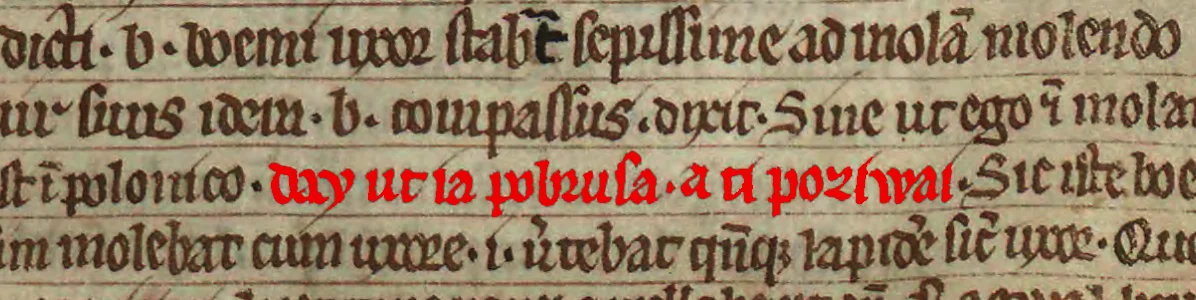 dicti · b · boemi uxor stabat sepissime ad molā molendo
uir suus idem · b · compassus · dixit · Sine ut ego ī molar
st ī polonico · day ut ia pobrusa · a ti poziwai · Sic iste boe
im molebat cum uxore · i · ūtebat qn̄q; lapidē sic̄ uxor · Quo